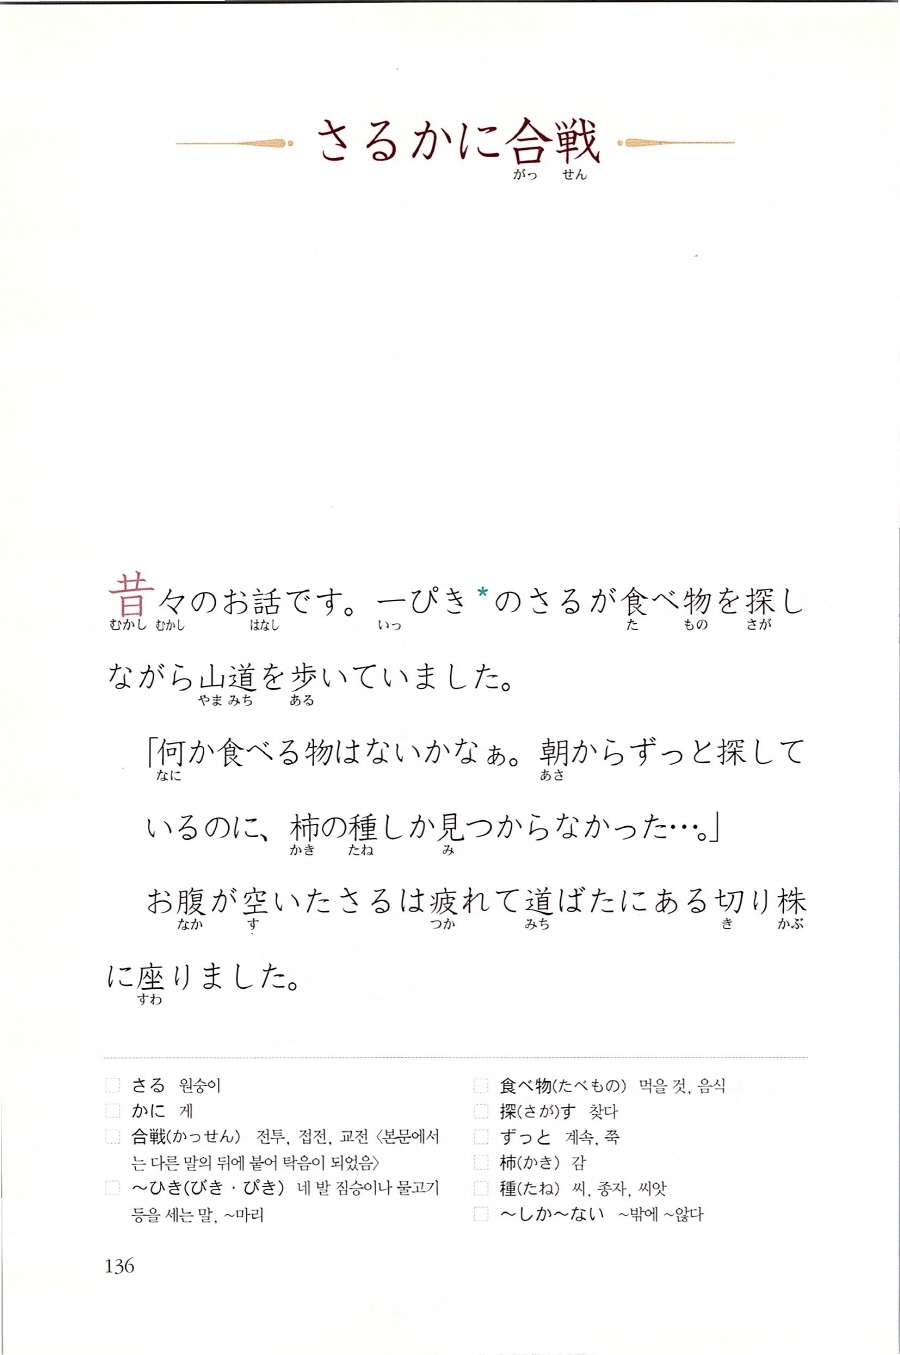 さるかに合戦
がっ せん
昔々のお話です。一ぴき*のさるが食べ物を探し
むかし むかし はなし いっ た もの さが
ながら山道を歩いていました。
やま みち ある
「何か食べる物はないかなぁ。朝からずっと探して
なに あさ
いるのに、柿の種しか見つからなかった…。」
かき たね み
お腹が空いたさるは疲れて道ばたにある切り株
なか す つか みち き かぶ
に座りました。
すわ
さる 원숭이
かに 게
合戦(かっせん) 전투, 접전, 교전 〈본문에서
는 다른 말의 뒤에 붙어 탁음이 되었음〉
～ひき(びき・ぴき) 네 발 짐승이나 물고기
등을 세는 말, ~마리
食べ物(たべもの) 먹을 것, 음식
探(さが)す 찾다
ずっと 계속, 쭉
柿(かき) 감
種(たね) 씨, 종자, 씨앗
～しか～ない ~밖에 ~않다
136